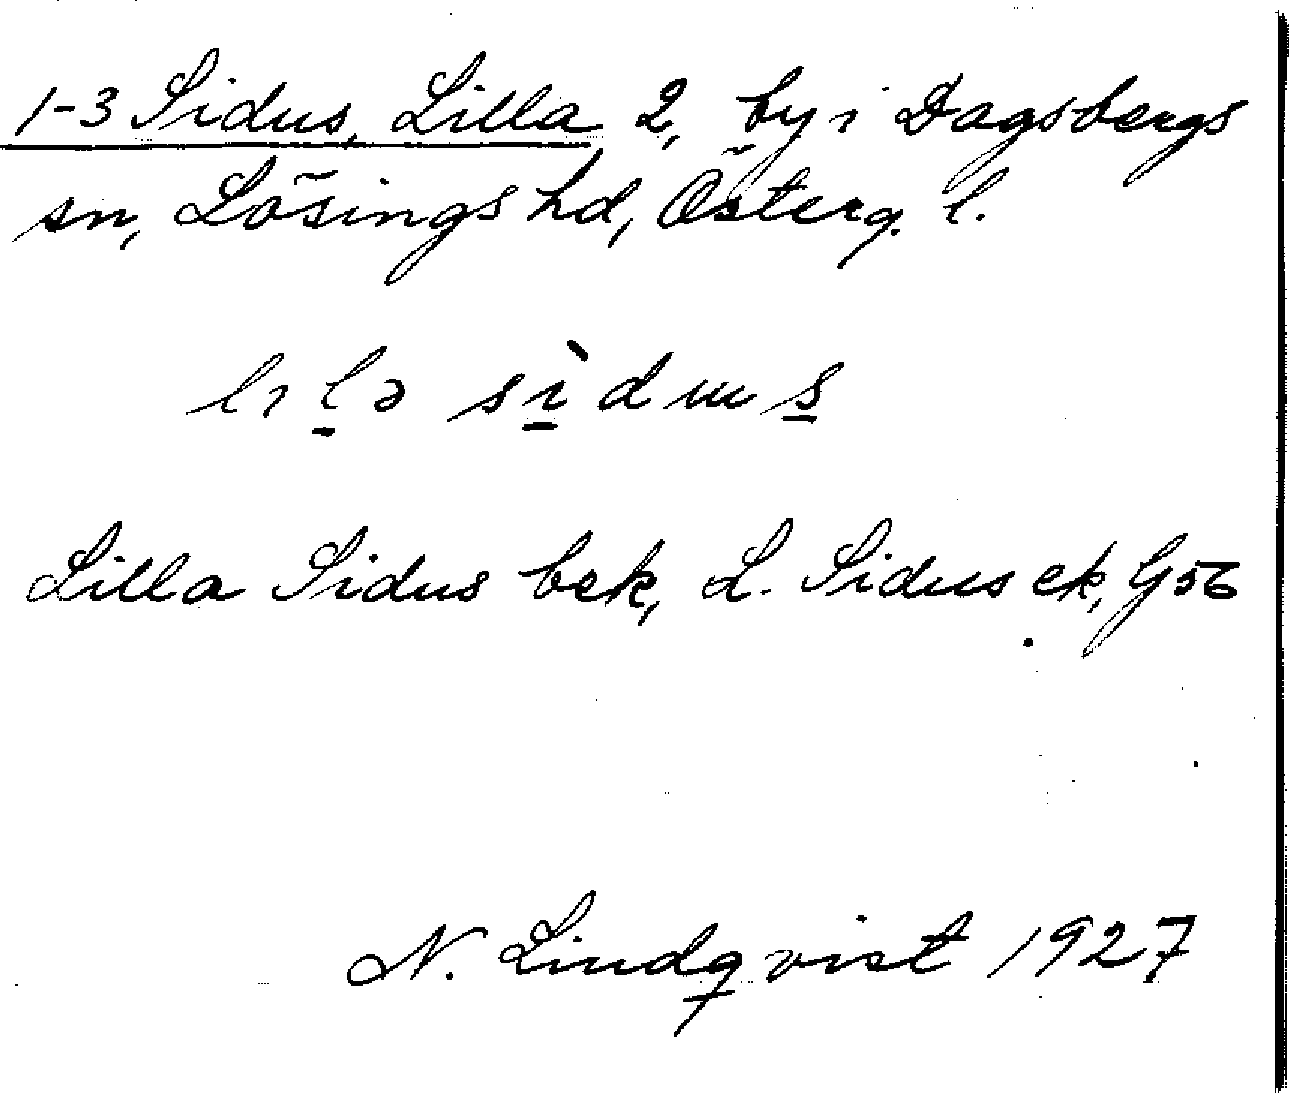 1-3 Sidus, Lilla 2, by i Dagsbergs
sn, Lösings hd, Österg. l.
lılə sìdɯs
Lilla Sidus bek, L. Sidus ek, G56
N. Lindqvist 1927